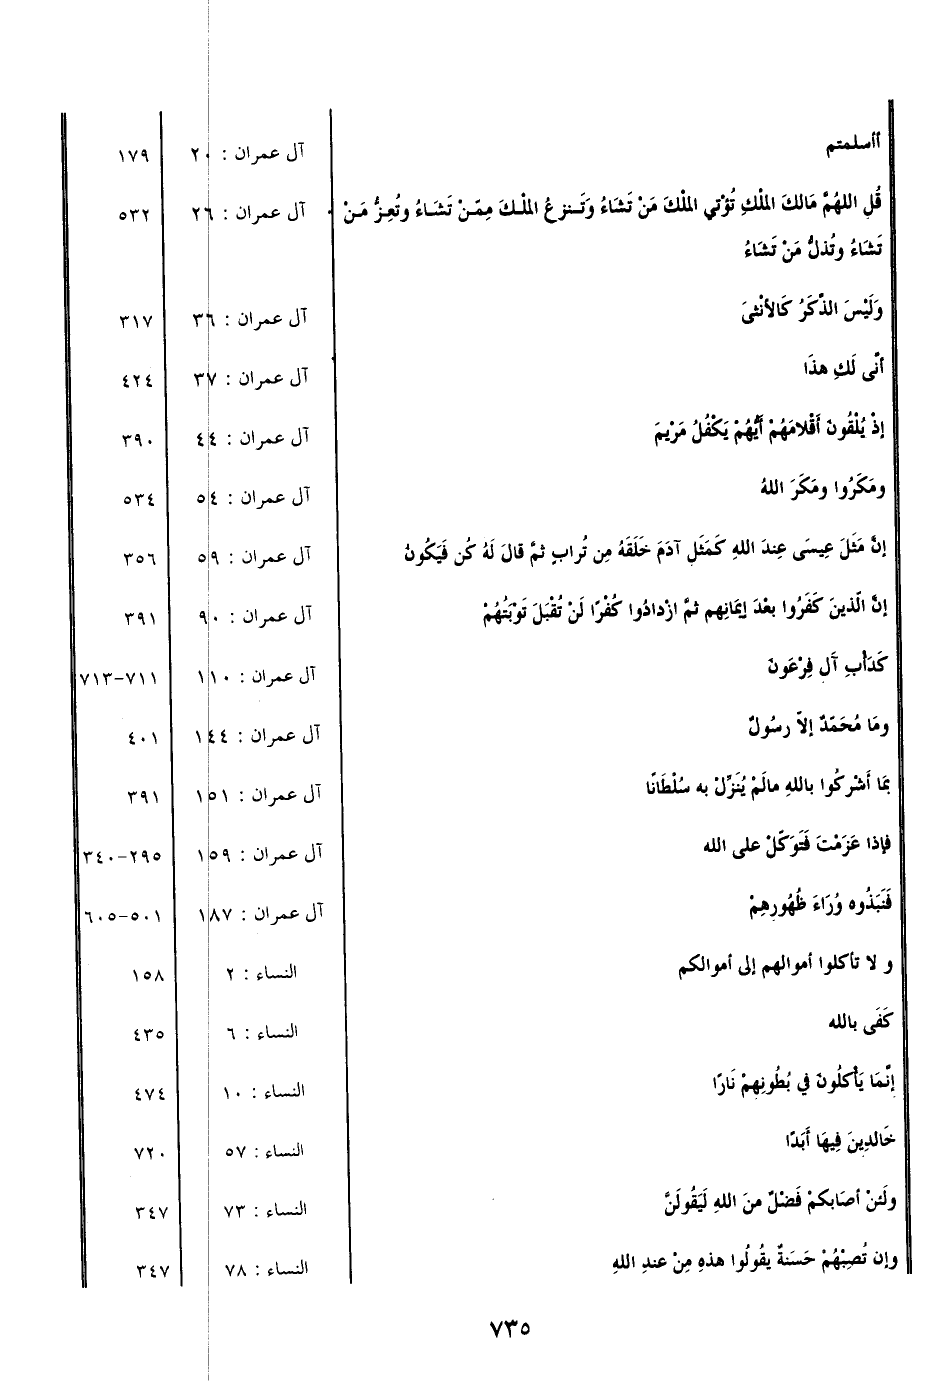 أأسلمتم آل عمران : ٢٠ ١٧٩
قُلِ اللهُمَّ مَالكَ الملْكِ تُؤْتي الملْكَ مَنْ تَشَاءُ وَتَنزعُ الملْكَ مِمّنْ تَشَاءُ وتُعِزُّ مَنْ آل عمران : ٢٦ ٥٣٢
تَشَاءُ وتُذلُّ مَنْ تَشَاءُ
وَلَيْسَ الذّكَرُ كَالأنْثىَ آل عمران : ٣٦ ٣١٧
أنّى لَكِ هذَا آل عمران : ٣٧ ٤٢٤
إذْ يُلْقُونَ أَقْلامَهُمْ أَيُّهُمْ يَكْفُلُ مَرْيمَ آل عمران : ٤٤ ٣٩٠
ومَكَرُوا ومَكَرَ اللهُ آل عمران : ٥٤ ٥٣٤
إنَّ مَثَلَ عِيسَى عِندَ اللهِ كَمَثَلِ آدَمَ خَلَقَهُ مِن تُرابٍ ثمَّ قالَ لَهُ كُن فَيَكُونُ آل عمران : ٥٩ ٣٥٦
إنَّ الّذينَ كَفَرُوا بعْدَ إيمَانِهم ثمَّ ازْدادُوا كُفْرًا لَنْ تُقْبَلَ تَوْبَتُهُمْ آل عمران : ٩٠ ٣٩١
كَدَأْبِ آلِ فِرْعَونَ آل عمران : ١١٠ ٧١١-٧١٣
ومَا مُحَمّدٌ إلاّ رسُولٌ آل عمران : ١٤٤ ٤٠١
بمَا أَشْركُوا باللهِ مالَمْ يُنَزِّلْ به سُلْطَانًا آل عمران : ١٥١ ٣٩١
فإذا عَزَمْتَ فَتَوَكّلْ على الله آل عمران : ١٥٩ ٢٩٥-٣٤٠
فَنَبَذُوه وُرَاءَ ظُهُورِهِمْ آل عمران : ١٨٧ ٥٠١-٦٠٥
و لا تأكلوا أموالهم إلى أموالكم النساء : ٢ ١٥٨
كَفَى بالله النساء : ٦ ٤٣٥
إنّمَا يَأْكلُونَ في بُطُونِهِمْ نَارًا النساء : ١٠ ٤٧٤
خَالدِينَ فِيهَا أَبَدًا النساء : ٥٧ ٧٢٠
ولَئنْ أصَابكمْ فَضْلٌ منَ اللهِ لَيَقُولَنَّ النساء : ٧٣ ٣٤٧
وإن تُصِبْهُمْ حَسَنةٌ يقُولُوا هذهِ مِنْ عندِ اللهِ النساء : ٧٨ ٣٤٧
٧٣٥